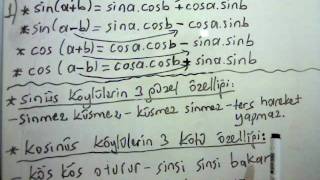 1) * sin(a+b) = sina.cosb + cosa.sinb
* sin(a-b) = sina.cosb - cosa.sinb
* cos (a+b) = cosa.cosb - sina.sinb
* cos (a-b) = cosa.cosb + sina.sinb
* Sinüs Köylülerin 3 güzel özelliği:
- Sinmez küsmez - küsmez sinmez - ters hareket
yapmaz.
* Kosinüs Köylülerin 3 kötü özelliği:
- kös kös oturur - sinsi sinsi bakar